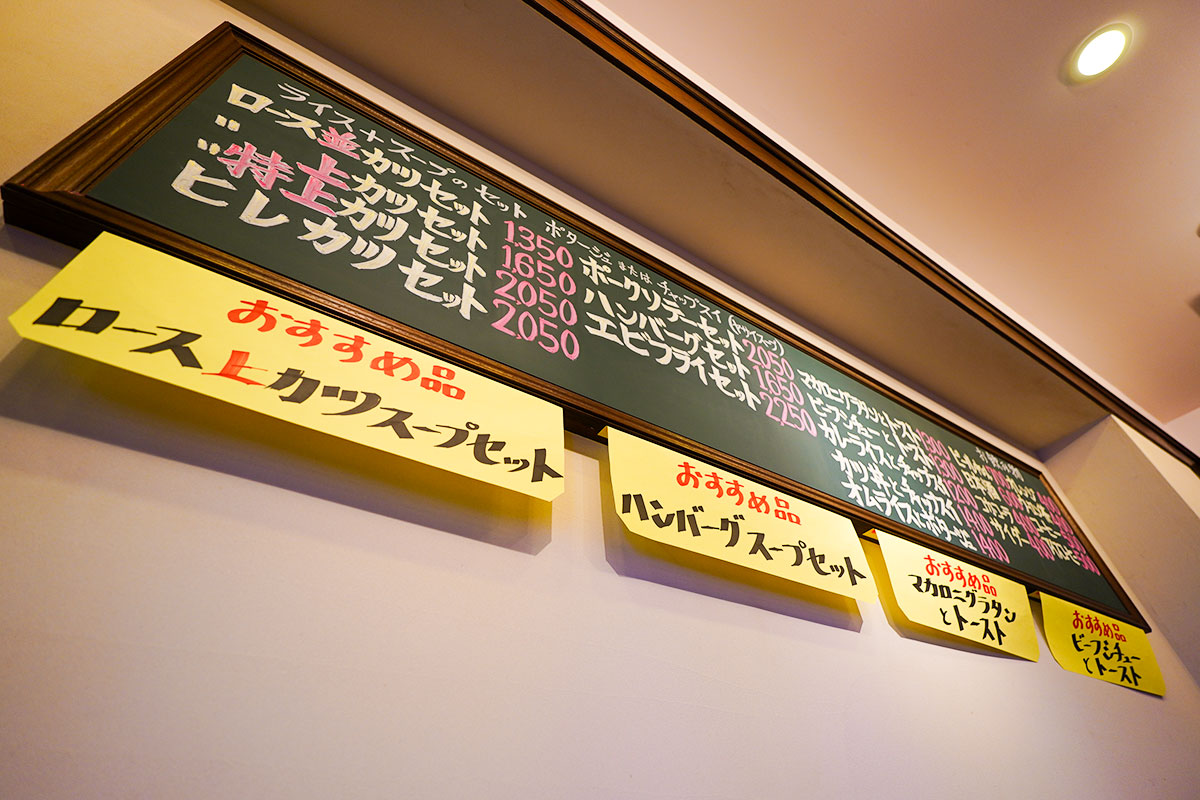 ライス+スープのセット ポタージュ または チャップスイ(ヤサイスープ)
ロース並カツセット 1350
〃 上カツセット 1650
〃 特上カツセット 2050
ヒレカツセット 2050
ポークソテーセット 2050
ハンバーグセット 1650
エビフライセット 2250
マカロニグラタンとトースト 1300
ビーフシチューとトースト
カレーライスとチャプスイ 1210
カツ丼とチャプスイ 1410
オムライスにポタージュ 1400
サイダー
おすすめ品
ロース上カツスープセット
おすすめ品
ハンバーグスープセット
おすすめ品
マカロニグラタン
とトースト
おすすめ品
ビーフシチュー
とトースト